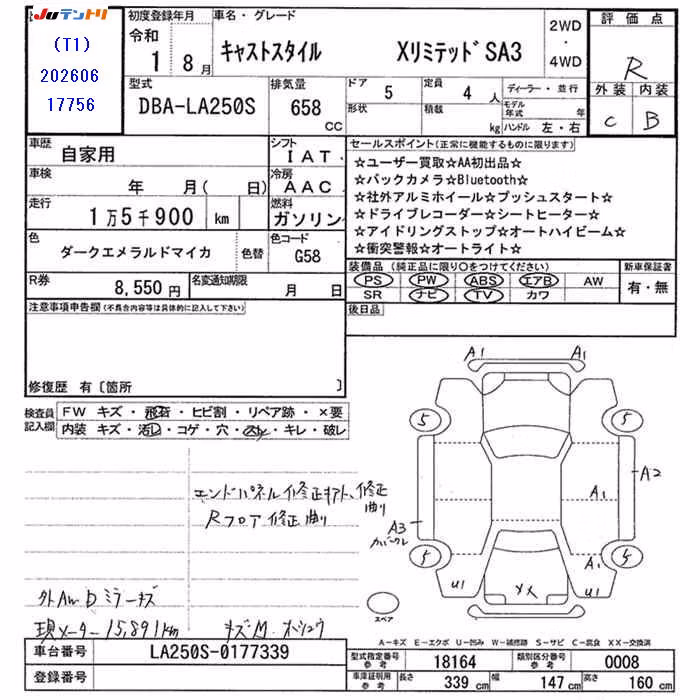 Juテントリ
(T1)
202606
17756
初度登録年月
令和
1 8月
車名・グレード
キャストスタイル XリミテッドSA3
2WD
・
4WD
評価点
R
外装 内装
C B
型式
DBA-LA250S
排気量
658
CC
ドア
5
定員
4人
形状
積載
kg
ディーラー・並行
モデル
年式 年
ハンドル 左・右
車歴
自家用
シフト
IAT
車検
年 月( 日)
冷房
AAC
走行
1万5千900 km
燃料
ガソリン
色
ダークエメラルドマイカ
色替
色コード
G58
R券
8,550円
名変通知期限
月 日
セールスポイント(正常に機能するものに限ります)
☆ユーザー買取☆AA初出品☆
☆バックカメラ☆Bluetooth☆
☆社外アルミホイール☆プッシュスタート☆
☆ドライブレコーダー☆シートヒーター☆
☆アイドリングストップ☆オートハイビーム☆
☆衝突警報☆オートライト☆
装備品(純正品に限り○をつけてください)
PS PW ABS エアB AW
SR ナビ TV カワ
新車保証書
有・無
後日品
注意事項申告欄(不具合内容等は具体的に記入して下さい)
修復歴 有〔箇所 〕
検査員
記入欄
FW キズ・飛石・ヒビ割・リペア跡・×要
内装 キズ・汚れ・コゲ・穴・スレ・キレ・破レ
エンドパネル修正
修正曲り
Rフロア修正曲り
外AW Dミラーキズ
現メーター15,891km
A1 A1
5 5
A2
A1
A3
5 5
A1
U1 U1
スペア
A-キズ E-エクボ U-凹み W-補修跡 S-サビ C-腐食 XX-交換済
車台番号
LA250S-0177339
登録番号
型式指定番号
参考
18164
類別区分番号
参考
0008
車庫証明用
参考
長さ 339 cm 幅 147 cm 高さ 160 cm